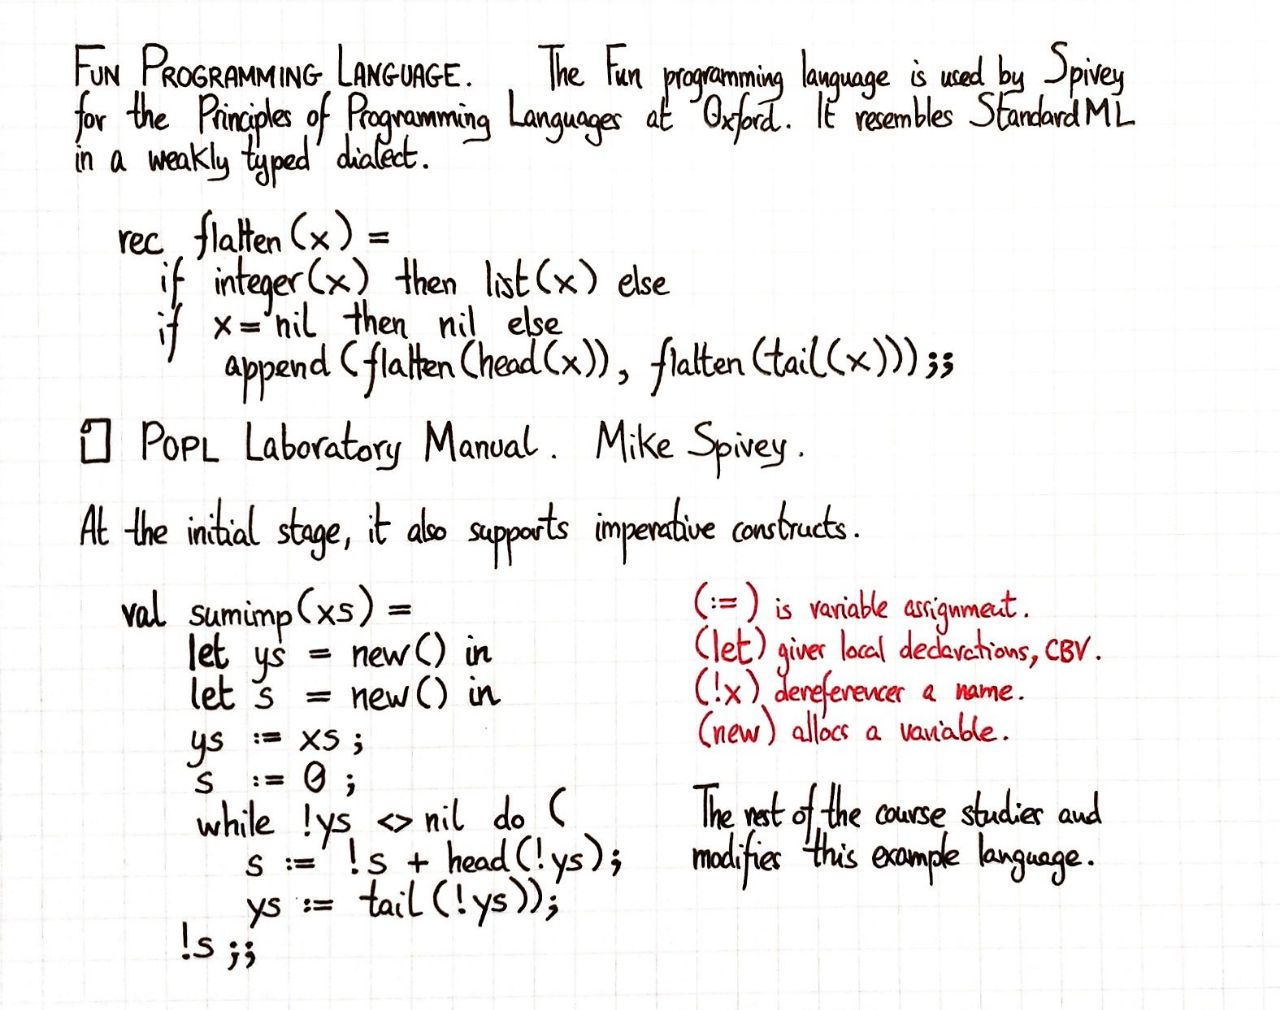 FUN PROGRAMMING LANGUAGE. The Fun programming language is used by Spivey
for the Principles of Programming Languages at Oxford. It resembles Standard ML
in a weakly typed dialect.
rec flatten(x) =
if integer(x) then list(x) else
if x = nil then nil else
append(flatten(head(x)), flatten(tail(x)));;
POPL Laboratory Manual. Mike Spivey.
At the initial stage, it also supports imperative constructs.
val sumimp(xs) =
let ys = new() in
let s = new() in
ys := xs;
s := 0;
while !ys <> nil do (
s := !s + head(!ys);
ys := tail(!ys));
!s;;
(:=) is variable assignment.
(let) gives local declarations, CBV.
(!x) dereferences a name.
(new) allocs a variable.
The rest of the course studies and
modifies this example language.